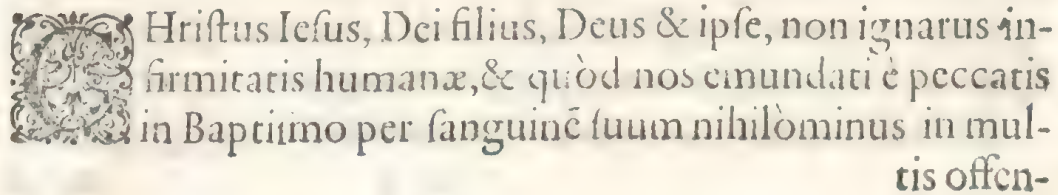 CHriſtus Ieſus, Dei filius, Deus & ipſe, non ignarus in-
firmitatis humanæ, & quòd nos emundati è peccatis
in Baptiſmo per ſanguinē ſuum nihilòminus in mul-
tis offen-